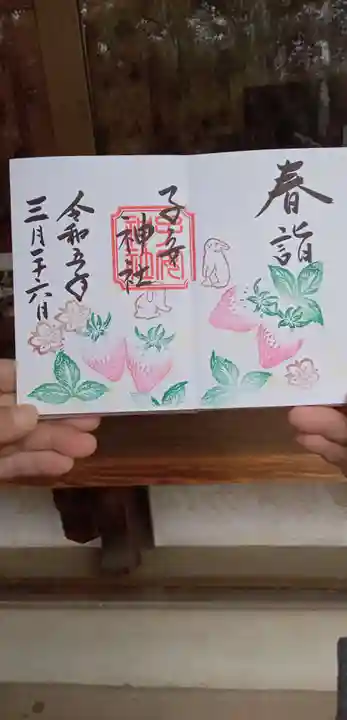 春詣
子安神社
令和五年
三月二十六日